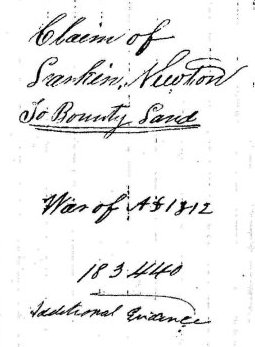 Claim of
Larkin, Newton
To Bounty Land
War of AD 1812
183440
Additional Evidence